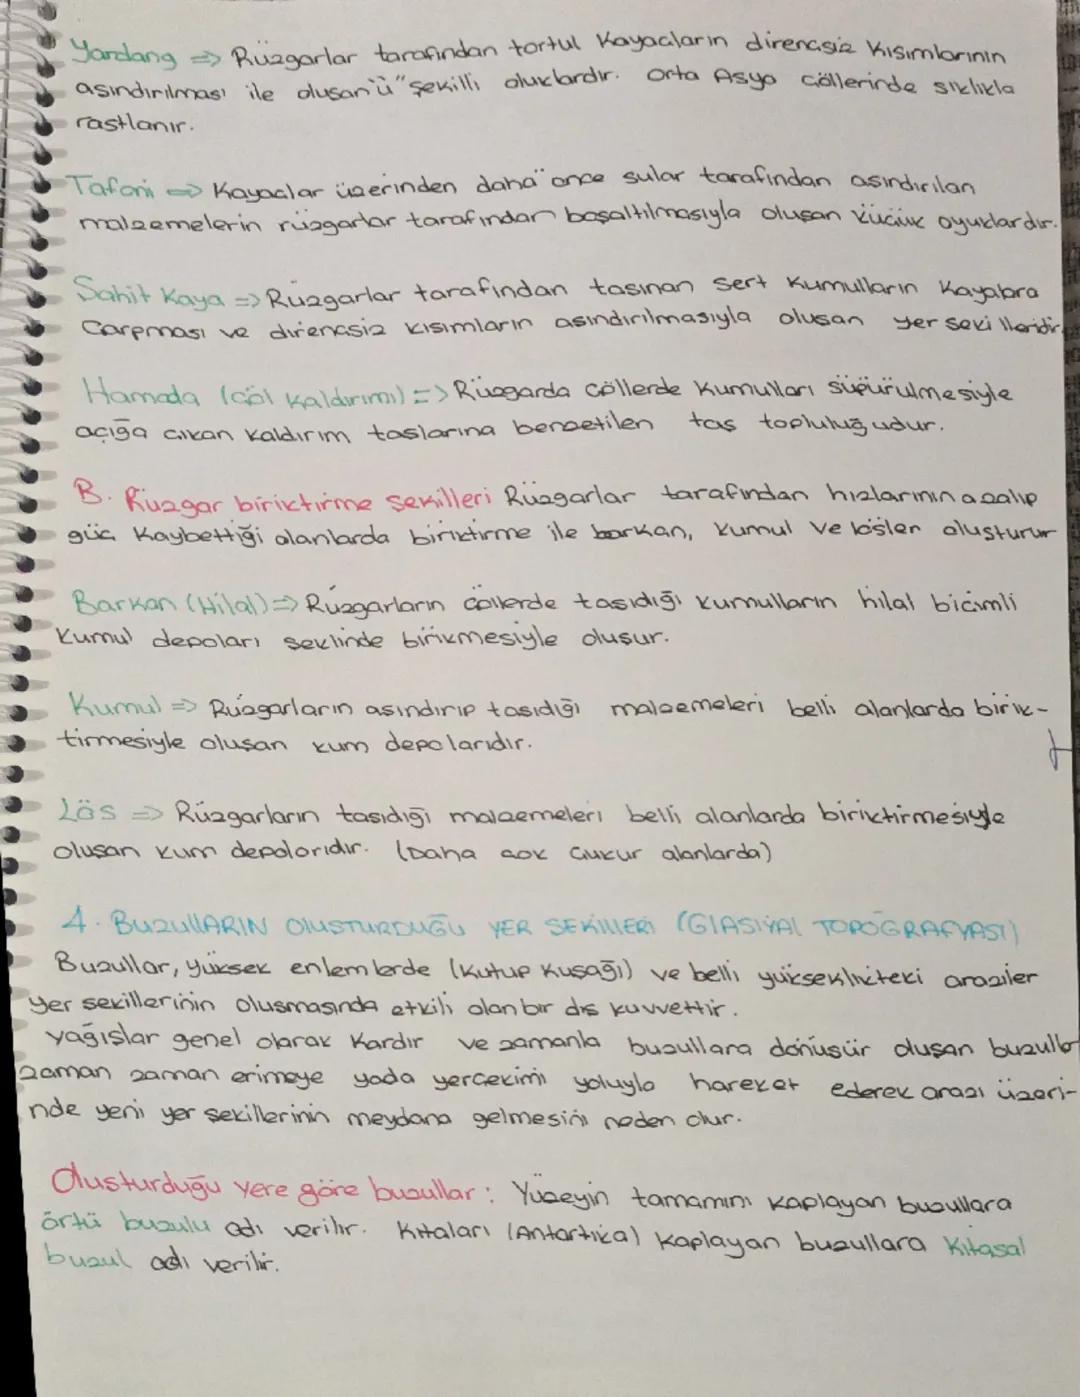 Yardang => Rüzgarlar tarafından tortul kayaçların dirençsiz kısımlarının
aşındırılması ile oluşan "ü" şekilli oluklardır. Orta Asya çöllerinde sıklıkla
rastlanır.
Tafoni => Kayaçlar üzerinden daha önce sular tarafından aşındırılan
malzemelerin rüzgarlar tarafından boşaltılmasıyla oluşan küçük oyuklardır.
Şahit Kaya => Rüzgarlar tarafından taşınan sert kumulların kayalara
Çarpması ve dirençsiz kısımların aşındırılmasıyla oluşan yer şekilleridir
Hamada (çöl kaldırımı) => Rüzgarda çöllerde kumulları süpürülmesiyle
açığa çıkan kaldırım taşlarına benzetilen taş topluluğudur.
B. Rüzgar biriktirme şekilleri Rüzgarlar tarafından hızlarının azalıp
güç kaybettiği alanlarda biriktirme ile barkan, kumul ve lösler oluşturur
Barkan (Hilal) => Rüzgarların çöllerde taşıdığı kumulların hilal biçimli
kumul depoları şeklinde birikmesiyle oluşur.
Kumul => Rüzgarların aşındırıp taşıdığı malzemeleri belli alanlarda birik-
tirmesiyle oluşan kum depolarıdır.
Lös => Rüzgarların taşıdığı malzemeleri belli alanlarda biriktirmesiyle
oluşan kum depolarıdır. (Daha çok çukur alanlarda)
4. BUZULLARIN OLUŞTURDUĞU YER ŞEKİLLERİ (GLASİYAL TOPOĞRAFYASI)
Buzullar, yüksek enlemlerde (Kutup Kuşağı) ve belli yükseklikteki araziler
yer şekillerinin oluşmasında etkili olan bir dış kuvvettir.
yağışlar genel olarak kardır ve zamanla buzullara dönüşür oluşan buzulla
zaman zaman erimeye yada yerçekimi yoluyla hareket ederek arazi üzeri-
nde yeni yer şekillerinin meydana gelmesini neden olur.
Oluşturduğu yere göre buzullar : Yüzeyin tamamını kaplayan buzullara
örtü buzulu adı verilir. Kıtaları (Antartika) kaplayan buzullara Kıtasal
buzul adı verilir.